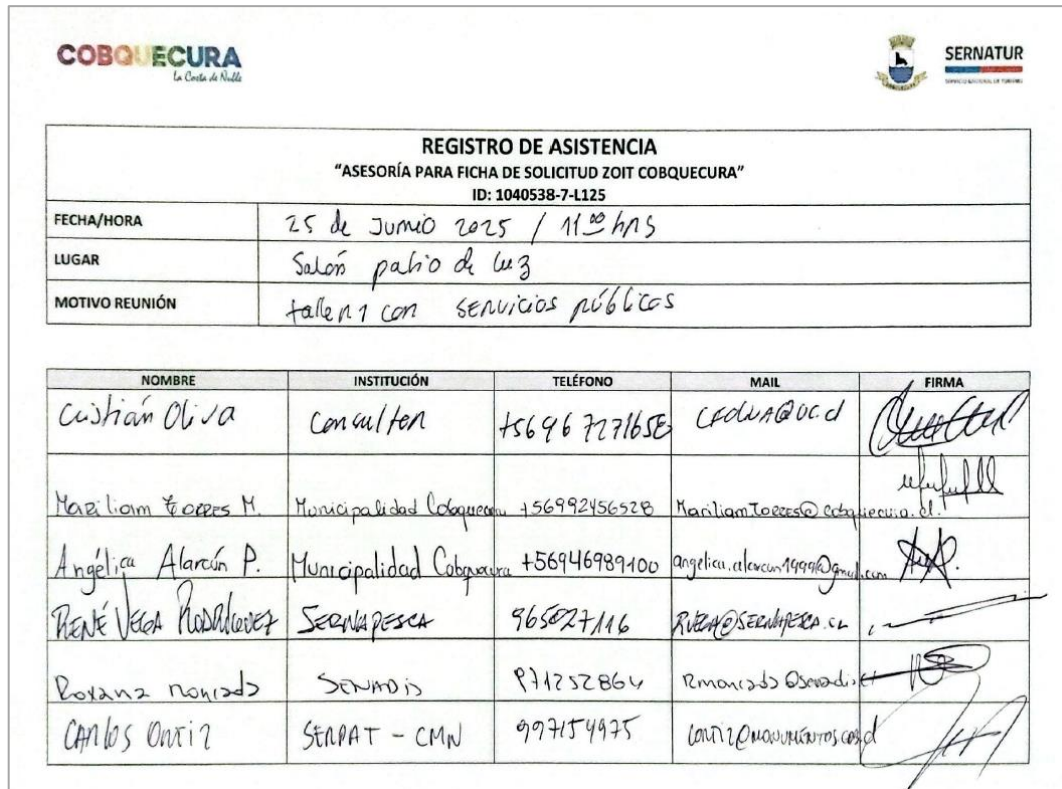 COBQUECURA
La Costa de Ñuble
SERNATUR
REGISTRO DE ASISTENCIA
"ASESORÍA PARA FICHA DE SOLICITUD ZOIT COBQUECURA"
ID: 1040538-7-L125
FECHA/HORA 25 de Junio 2025 / 11:00 hrs
LUGAR Salón patio de luz
MOTIVO REUNIÓN taller 1 con servicios públicos
NOMBRE INSTITUCIÓN TELÉFONO MAIL FIRMA
Cristián Oliva Consultor CFOLIVA@UC.cl
Mariliam Torres M. Municipalidad Cobquecura +56992456528 MariliamTorres@cobquecura.cl.
Angélica Alarcón P. Municipalidad Cobquecura +56946989100 angelica.alarcon1999@gmail.com
RENÉ VEGA RODRÍGUEZ SERNAPESCA 965827116 RVEGA@SERNAPESCA.CL
Roxana Moncada SENADIS 971252864 rmoncada@senadis.cl
CARLOS ORTIZ SERPAT - CMN 997154975